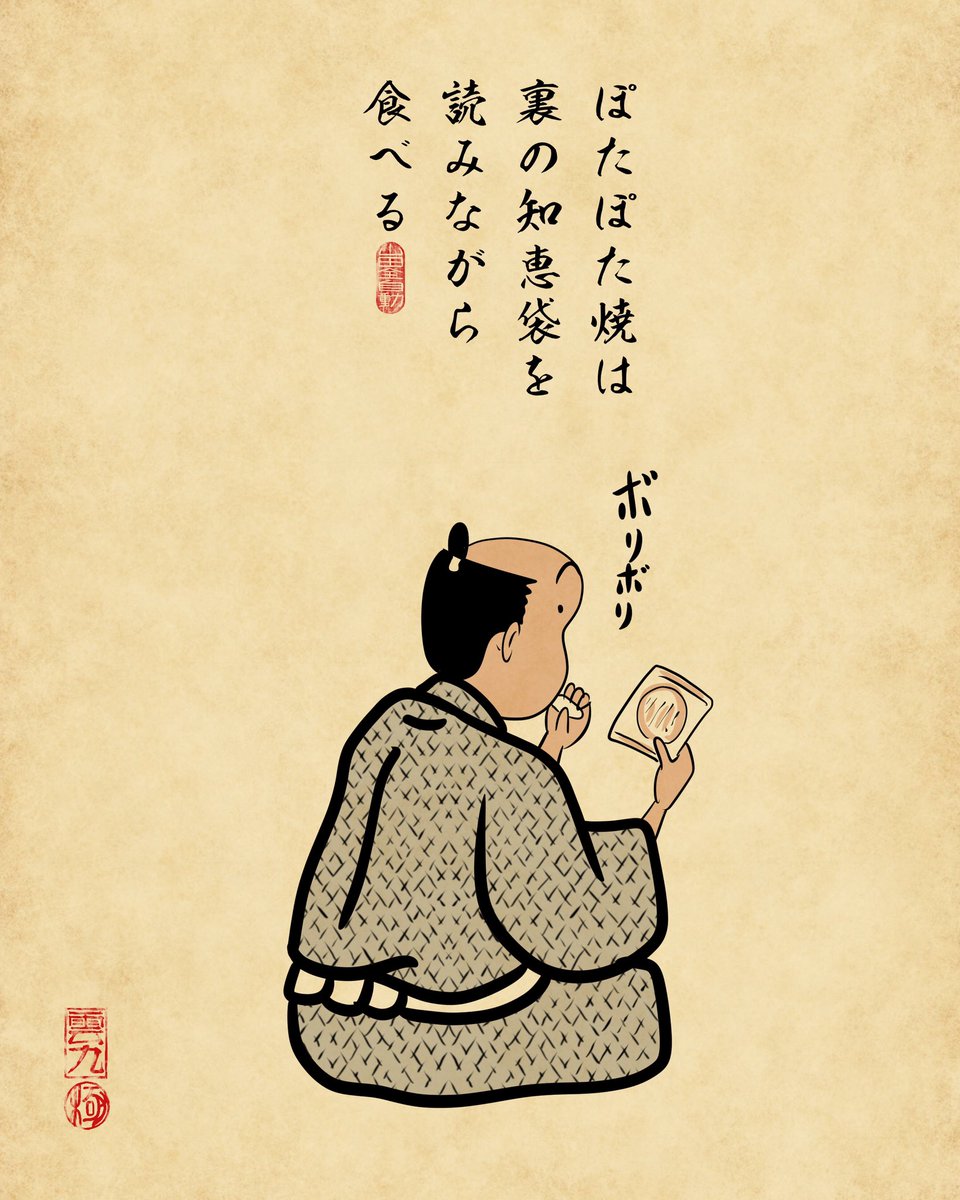 ぽたぽた焼は
裏の知恵袋を
読みながら
食べる
ボリボリ